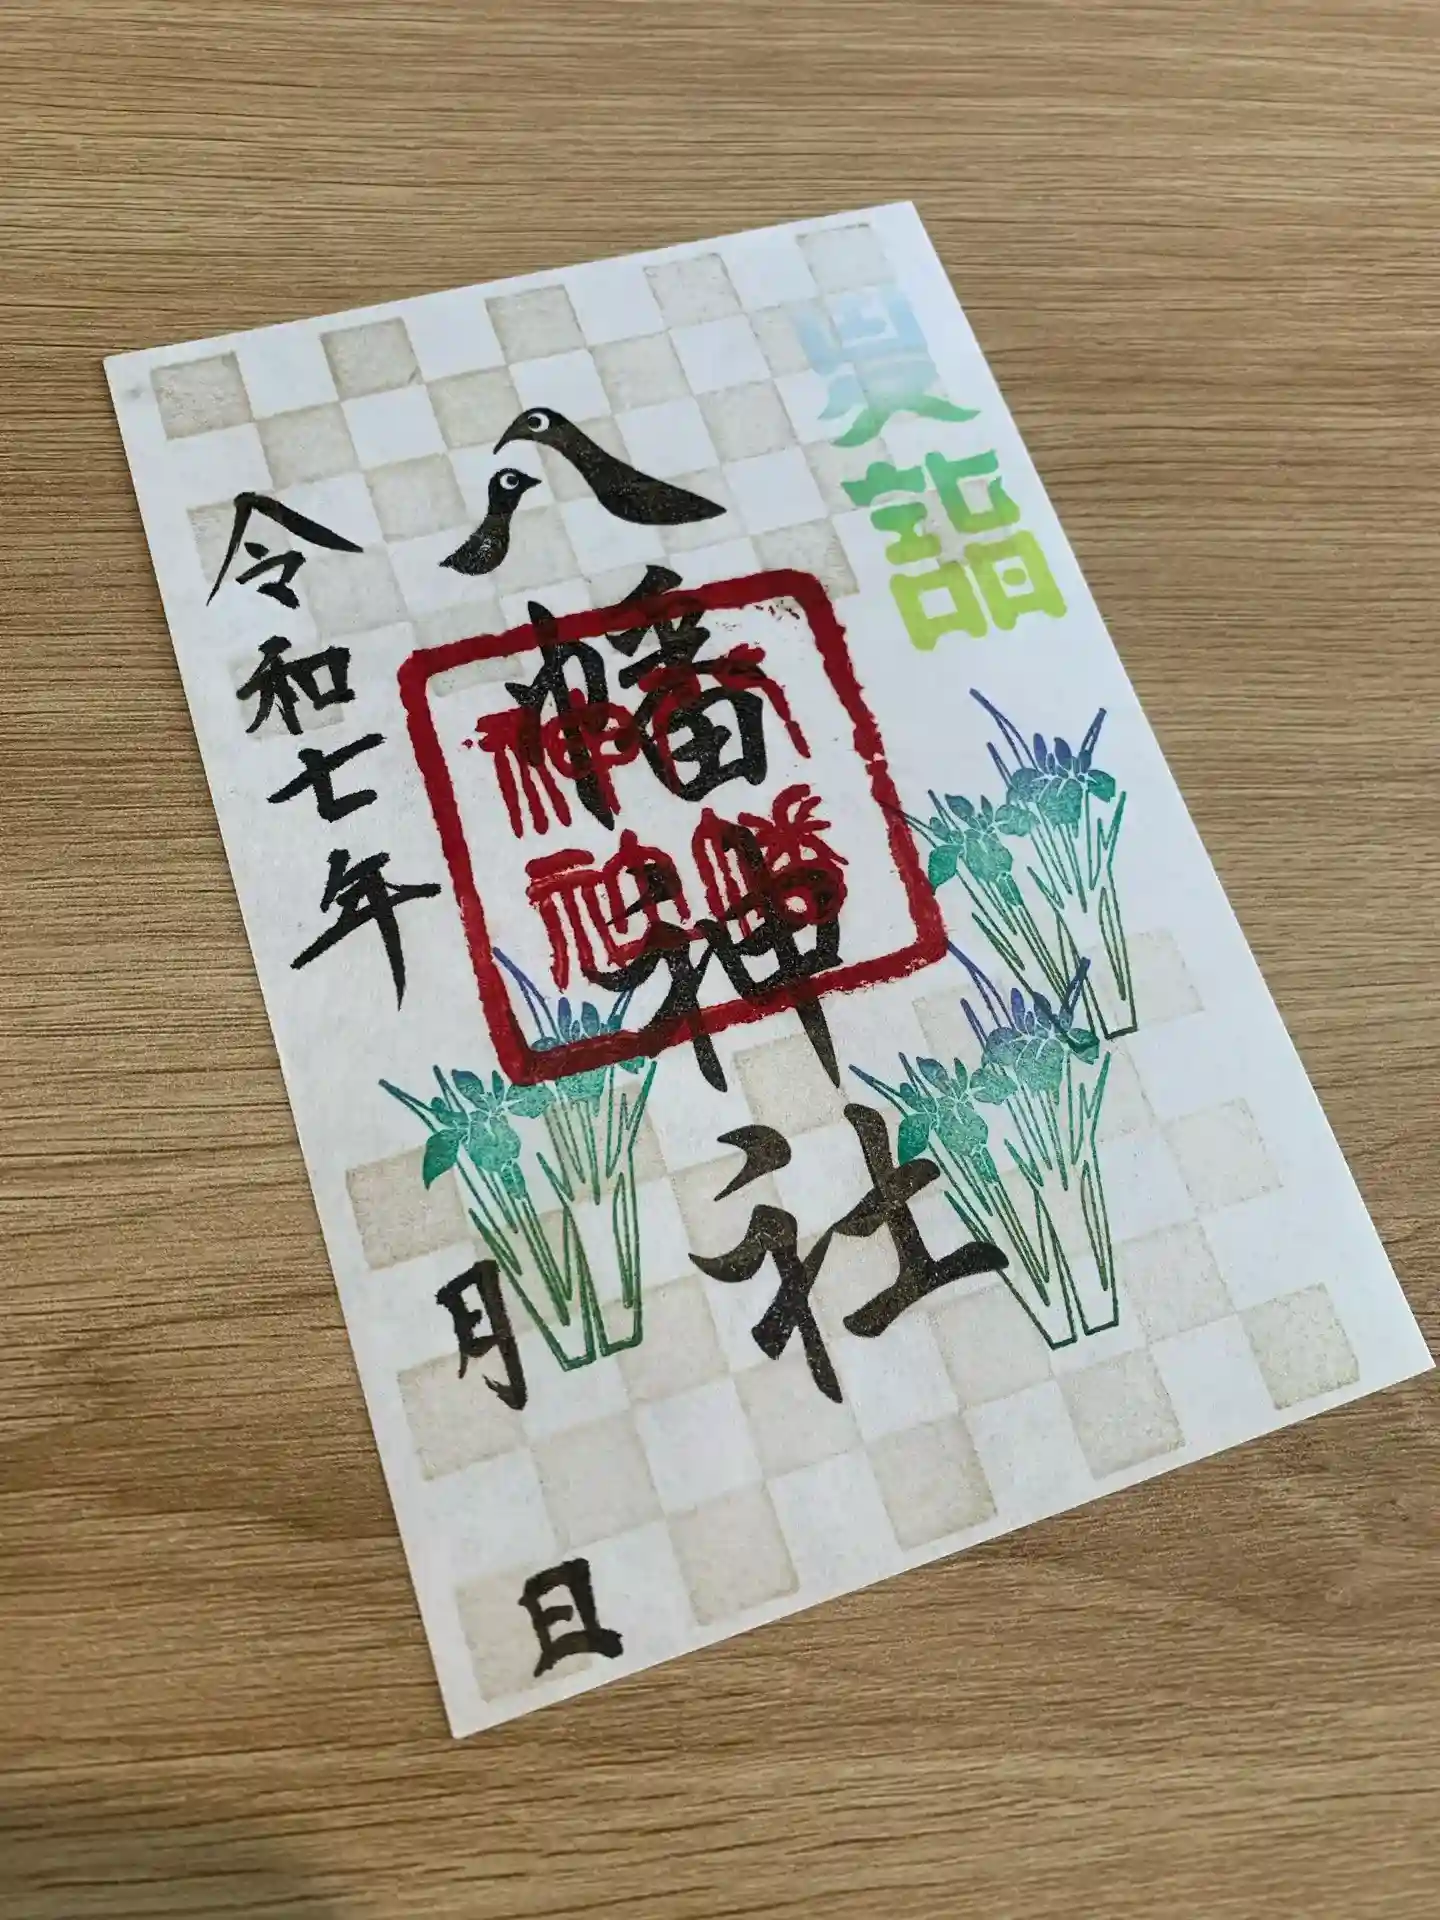 夏詣
八幡神社
八幡
神社
令和七年月日